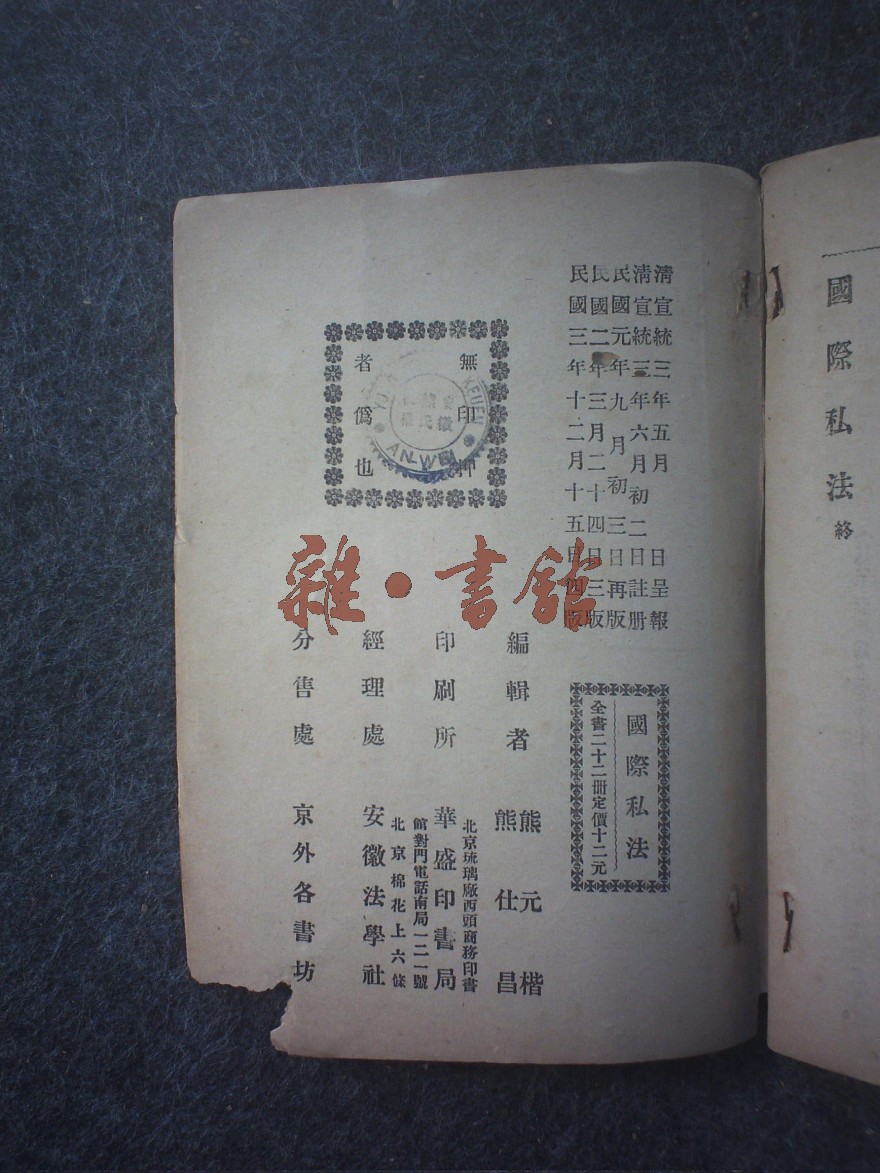 國際私法
終
清宣統三年五月 日呈報
清宣統三年六月初二日註册
民國元年九月初三日再版
民國二年三月二十四日三版
民國三年十二月十五日四版
國際私法
全書二十二册定價十二元
無印押
者僞也
ANWEI
雜·書館
編輯者
熊元楷
熊仕昌
印刷所
華盛印書局
北京琉璃廠西頭商務印書
館對門電話南局一二一號
經理處
安徽法學社
北京棉花上六條
分售處
京外各書坊